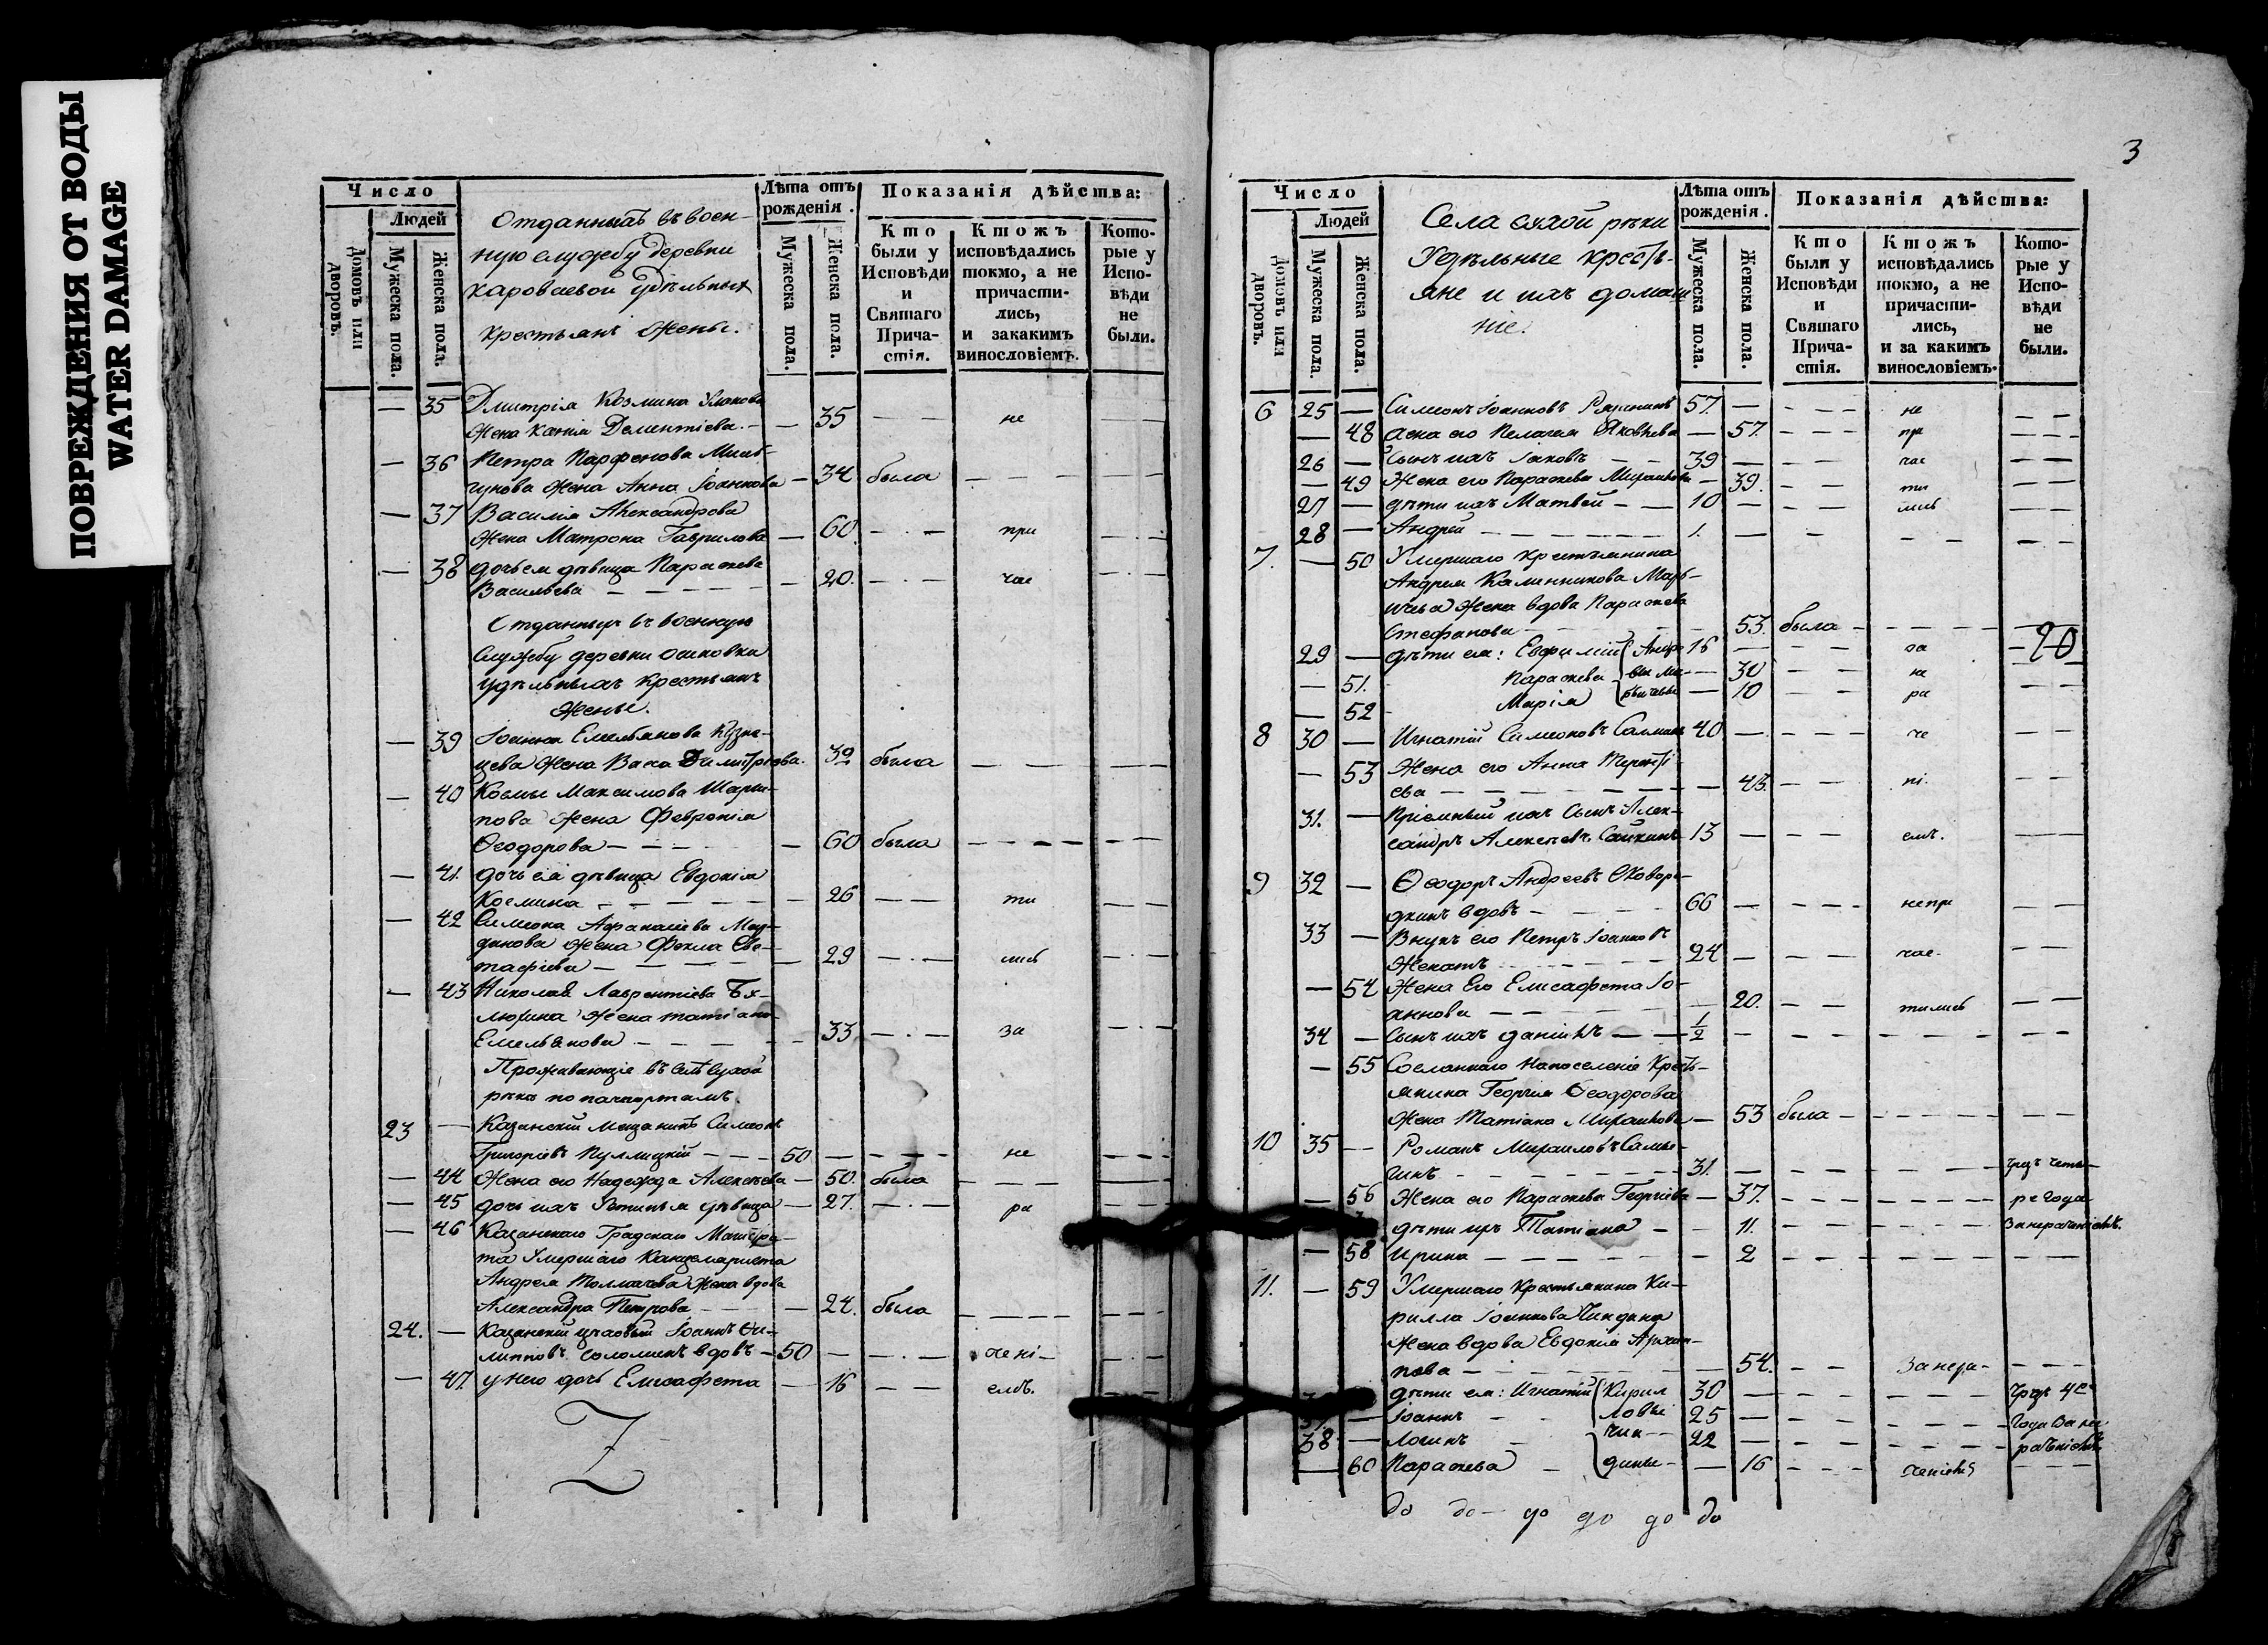 ПОВРЕЖДЕНИЯ ОТ ВОДЫ
WATER DAMAGE
Число
Людей
Домовъ или дворовъ.
Мужеска пола.
Женска пола.
Отданныхъ въ воен-
ную службу деревни
Караваевой удѣльныхъ
крестьянъ жены.
Лѣта отъ рожденія.
Мужеска пола.
Женска пола.
Показанія дѣйства:
Кто были у Исповѣди и Святаго Прича-стія.
Ктожъ исповѣдались токмо, а не причасти-лись, и закакимъ винословіемъ.
Кото-рые у Испо-вѣди не были.
— 35 Дмитрія Козмина
жена Ксенія Дементіева — 35 — — не — —
— 36 Петра Парфенова
жена Анна Іоаннова — 34 была — — —
— 37 Василія Александрова
жена Матрона Гаврилова — 60 — — при — —
— 38 дочь ея дѣвица Параскева
Васильева — — — 20. — — час — —
Отданныхъ въ военную
службу деревни
удѣльныхъ крестьянъ
жены.
— 39 Іоанна Емельянова Кузне-
цева жена Димитріева. 39 была — — —
— 40 Космы Максимова Шары-
пова жена Февронія
Ѳеодорова — — — 60 была — — —
— 41 дочь ея дѣвица Евдокія
Космина — — — 26 — — ти — —
— 42 Симеона Афанасіева
жена Фекла Евс-
тафіева — — — 29 — — лись — —
— 43 Николая Лаврентіева
жена Татіана
Емельянова — — — 33 — — за — —
Проживающіе въ селѣ Сухой
рѣкѣ по пачпортамъ.
23 — Казанскій мещанинъ Симеонъ
Григоріевъ — — 50 — — — не — —
— 44 Жена его Надежда Алексѣева — 50. была — — —
— 45 дочь ихъ Устинья дѣвица — 27. — — ра — —
— 46 Казанскаго Градскаго Магистра-
та умершаго Канцеляриста
Андрея Толмачева жена вдова
Александра Петрова — — 24. была — — —
24. — Казанскій цеховый Іоаннъ Фи-
липповъ вдовъ — 50 — — — чені- — —
— 47. у него дочь Елисафета — 16 — — емъ. — —
3
Число
Людей
Домовъ или дворовъ.
Мужеска пола.
Женска пола.
Села сухой рѣки
Удѣльные кресть-
яне и ихъ домаш-
ніе.
Лѣта отъ рожденія.
Мужеска пола.
Женска пола.
Показанія дѣйства:
Кто были у Исповѣди и Святаго Прича-стія.
Ктожъ исповѣдались токмо, а не причасти-лись, и за какимъ винословіемъ.
Кото-рые у Испо-вѣди не были.
6 25 — Симеонъ Іоанновъ 57. — — — не — —
— 48 жена его Пелагея Яковлева — 57. — — при — —
26 — Сынъ ихъ Іаковъ — — 39 — — — час — —
— 49 Жена его Параскева Михаилова — 39. — — ти — —
27 — дѣти ихъ Матвей — — 10 — — — лись — —
28 — Андрей — — — 1. — — — — —
7. — 50 Умершаго крестьянина
Андрея Калинникова
жена вдова Параскева
Стефанова — — — 53. была — — —
20
29 — дѣти ея: Евфимій 16 — — — за — —
— 51. Параскева — 30 — — не — —
— 52 Марія — 10 — — ра — —
8 30 — Игнатій Симеоновъ 40 — — — че — —
— 53 Жена его Анна Теренті-
ева — — — 43. — — ні. — —
31. — Пріемный ихъ сынъ Алек-
сандръ Алексѣевъ 13 — — — емъ. — —
9 32 — Ѳеодоръ Андреевъ Сковоро-
дкинъ вдовъ — — 66 — — — непри — —
33 — Внукъ его Петръ Іоанновъ
женатъ — — 24 — — — час- — —
— 54 Жена его Елисафета Іо-
аннова — — — 20. — — тились — —
34 — Сынъ ихъ Даніилъ — — ½ — — — — —
— 55 Сосланнаго на поселеніе кресть-
янина Георгія Ѳеодорова
жена Татіана Михаилова — 53 была — — —
10 35 — Романъ Михаиловъ
— — 31. — — — — чрезъ четы-
— 56 Жена его Параскева Георгіева — 37. — — — ре года
дѣти ихъ Татіана — — 11. — — — за нераченіемъ.
— 58 Ирина — — — 2 — — — —
11. — 59 Умершаго крестьянина Ки-
рилла Іоаннова Чиндина
жена вдова Евдокія Архип-
пова — — — 54. — — за нера- — —
дѣти ея: Игнатій Кирил 30 — — — — чрезъ 4е
— Іоаннъ — ловы 25 — — — — года за не
38 — Логинъ — чин- 22 — — — — раченіемъ
— 60 Параскева — дины — 16 — — ченіемъ — —